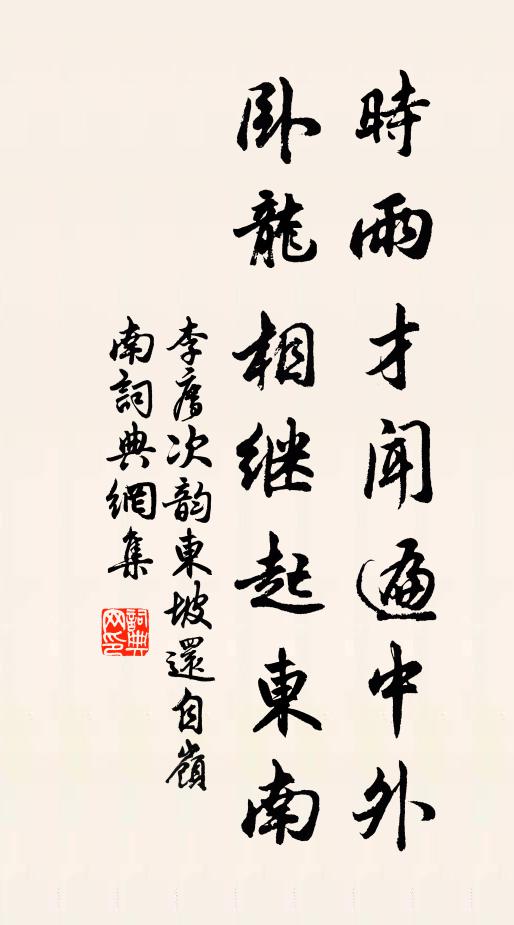 時雨才聞遍中外
卧龍相继起東南
李廌次韵東坡還自嶺
南詞典網集
詞典
网印